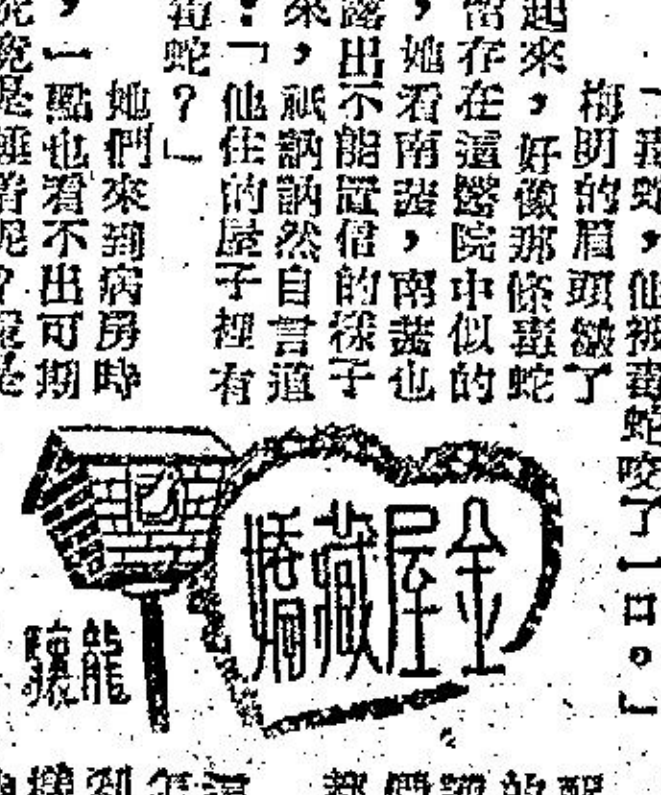 「毒蛇，他被毒蛇咬了一口。」
梅明的眉頭皺了
起來，好像那條毒蛇
留存在這醫院中似的
，她看南茜，南茜也
露出不能置信的樣子
來，祇訥訥然自言道
：「他住的屋子裡有
毒蛇？」
她們來到病房時
，一點也看不出可期
究竟是睡着呢？還是
金屋藏嬌
龍驤